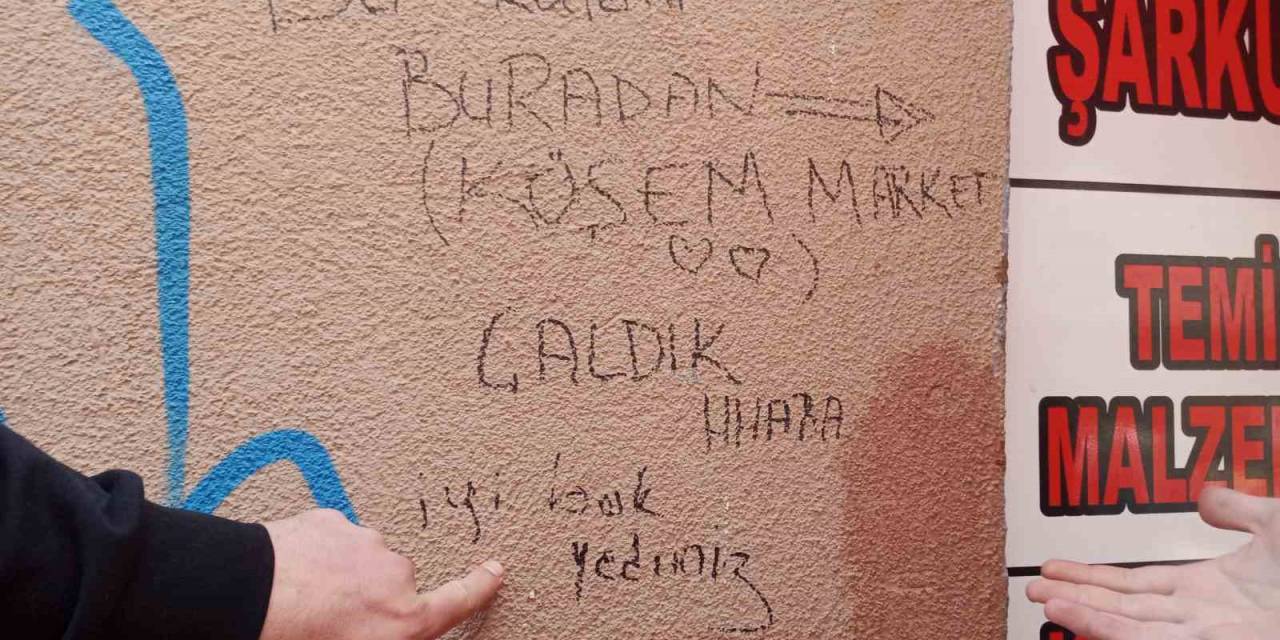 BURADAN
(KÖŞEM MARKET
♡♡)
ÇALDIK
HHABA
iyi bok
yediniz
ŞARKÜ
TEMİ
MALZE